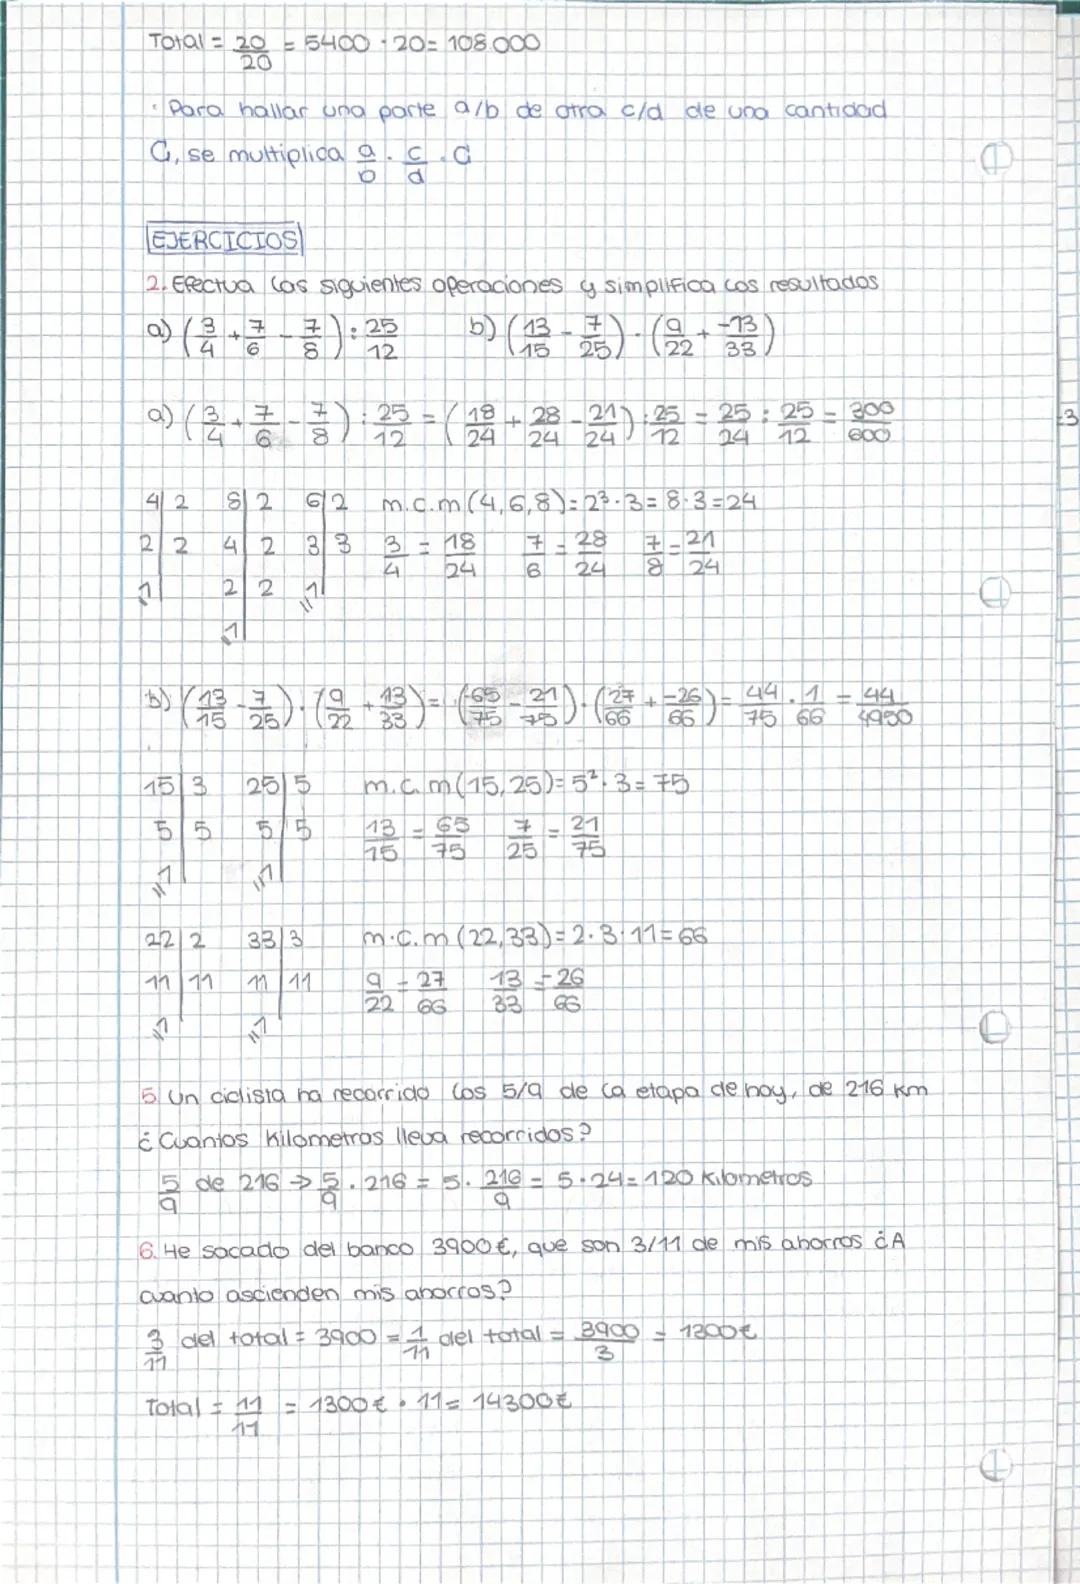 Total = 20/20 = 5400 · 20 = 108.000
· Para hallar una parte a/b de otra c/d de una cantidad
C, se multiplica a/b · c/d · C
EJERCICIOS
2. Efectua las siguientes operaciones y simplifica los resultados
a) (3/4 + 7/6 - 7/8) : 25/12 b) (13/15 - 7/25) · (9/22 + -13/33)
a) (3/4 + 7/6 - 7/8) : 25/12 = (18/24 + 28/24 - 21/24) : 25/12 = 25/24 : 25/12 = 300/600
4|2 8|2 6|2 m.c.m (4,6,8) = 2³·3 = 8·3 = 24
2|2 4|2 3|3 3/4 = 18/24 7/6 = 28/24 7/8 = 21/24
1 2|2 1
1
b) (13/15 - 7/25) · (9/22 + 13/33) = (65/75 - 21/75) · (27/66 + -26/66) = 44/75 · 1/66 = 44/4950
15|3 25|5 m.c.m (15,25) = 5²·3 = 75
5|5 5|5 13/15 = 65/75 7/25 = 21/75
1 1
22|2 33|3 m.c.m (22,33) = 2·3·11 = 66
11|11 11|11 9/22 = 27/66 13/33 = -26/66
1 1
5 Un ciclista ha recorrido los 5/9 de la etapa de hoy, de 216 km
¿Cuantos kilometros lleva recorridos?
5/9 de 216 → 5/9 · 216 = 5 · 216/9 = 5·24 = 120 kilometros
6. He sacado del banco 3900€, que son 3/11 de mis ahorros ¿A
cuanto ascienden mis ahorros?
3/11 del total = 3900 = 1/11 del total = 3900/3 = 1300€
Total = 11/11 = 1300€ · 11 = 14300€